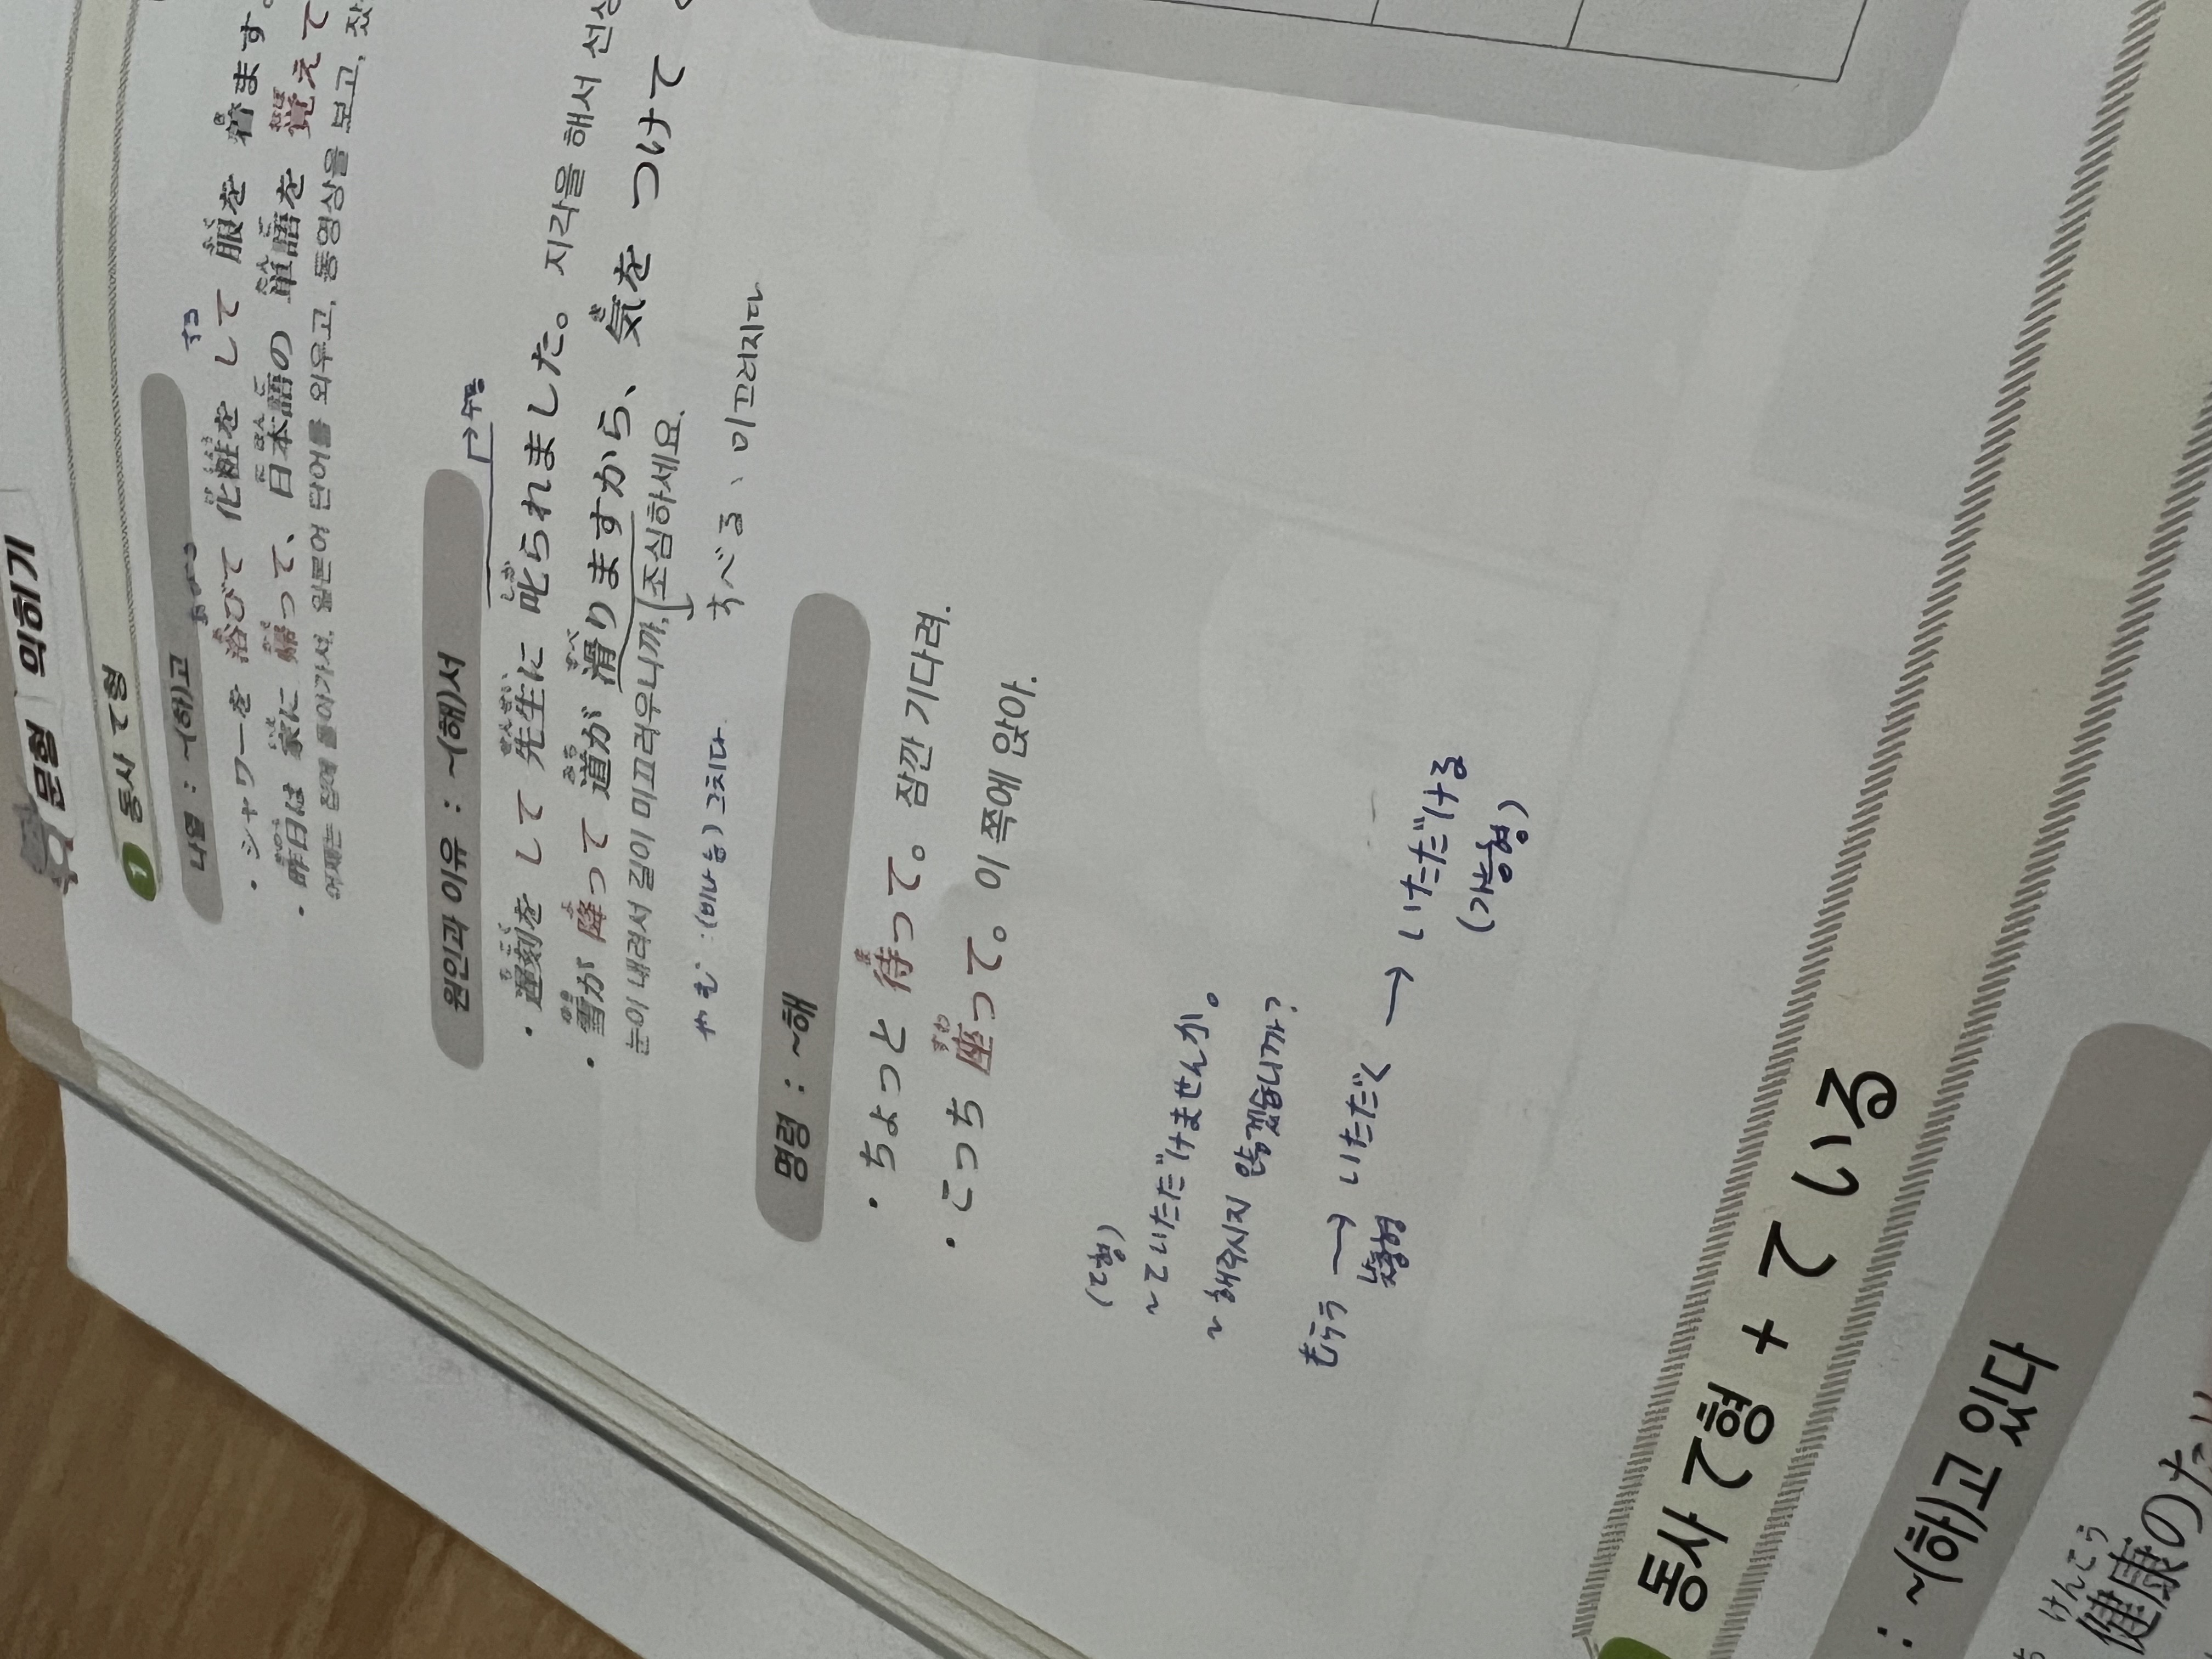 문형 익히기
1 동사 て형
나열 : ~(하)고
する
・シャワーを 浴びて 化粧を して 服を 着ます。
・昨日は 家に 帰って、日本語の 単語を 覚えて
어제는 집에 돌아가서, 일본어 단어를 외우고, 동영상을 보고, 잤
원인과 이유 : ~(해)서
→수동
・遅刻を して 先生に 叱られました。 지각을 해서 선생
・雪が 降って 道が 滑りますから、気を つけて
눈이 내려서 길이 미끄러우니까, 조심하세요.
やむ : (비나 눈) 그치다.
すべる、미끄러지다
명령 : ~해
・ちょっと 待って。 잠깐 기다려.
・こっち 座って。 이 쪽에 앉아.
(て형)
~ていただけませんか。
~해주시지 않겠습니까?
もらう → いただく → いただける
(가능형)
동사 て형 + て いる
: ~(하)고 있다
健康の